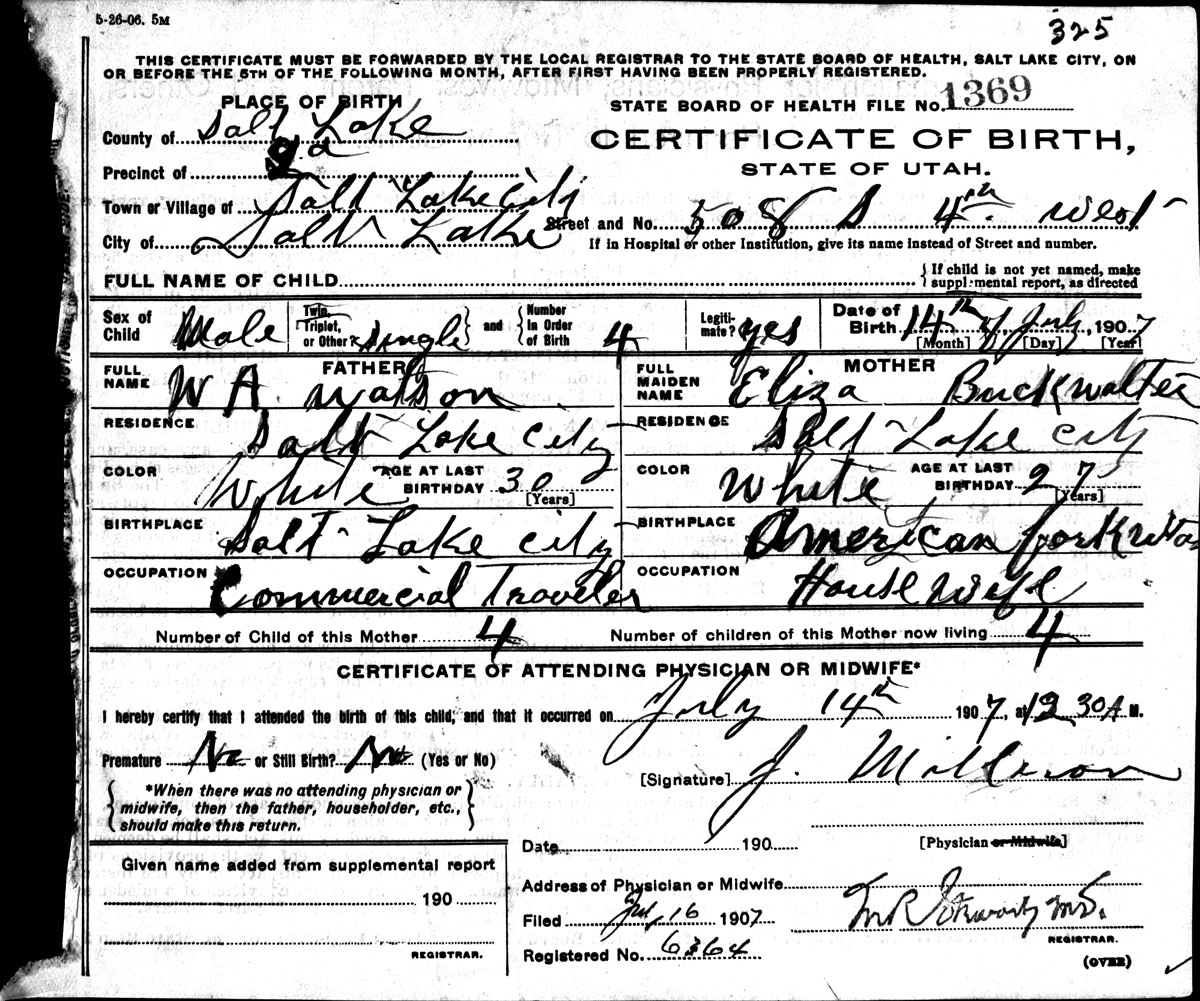 5-26-06. 5M
325
THIS CERTIFICATE MUST BE FORWARDED BY THE LOCAL REGISTRAR TO THE STATE BOARD OF HEALTH, SALT LAKE CITY, ON
OR BEFORE THE 5TH OF THE FOLLOWING MONTH, AFTER FIRST HAVING BEEN PROPERLY REGISTERED.
PLACE OF BIRTH
STATE BOARD OF HEALTH FILE No. 1369
County of Salt Lake
CERTIFICATE OF BIRTH,
Precinct of
STATE OF UTAH.
Town or Village of Salt Lake City
Street and No. 508 S 4th West
City of Salt Lake
If in Hospital or other Institution, give its name instead of Street and number.
FULL NAME OF CHILD
If child is not yet named, make
supplemental report, as directed
Sex of Child Male
Twin, Triplet, or Other? Single
and Number In Order of Birth 4
Legitimate? yes
Date of Birth 14th of July, 1907
[Month] [Day] [Year]
FATHER
MOTHER
FULL NAME W A. Watson
FULL MAIDEN NAME Eliza Buckwalter
RESIDENCE Salt Lake City
RESIDENCE Salt Lake City
COLOR White AGE AT LAST BIRTHDAY 30 [Years]
COLOR White AGE AT LAST BIRTHDAY 27 [Years]
BIRTHPLACE Salt Lake City
BIRTHPLACE American fork Utah
OCCUPATION Commercial Traveler
OCCUPATION House Wife
Number of Child of this Mother 4
Number of children of this Mother now living 4
CERTIFICATE OF ATTENDING PHYSICIAN OR MIDWIFE*
I hereby certify that I attended the birth of this child, and that it occurred on July 14th 1907, at 12 30 A M.
Premature No or Still Birth? No (Yes or No)
[Signature] J.
*When there was no attending physician or
midwife, then the father, householder, etc.,
should make this return.
[Physician or Midwife]
Date 190
Given name added from supplemental report
190
Address of Physician or Midwife
Filed Jul, 16 1907
M.D.
REGISTRAR.
REGISTRAR.
Registered No. 6364
(OVER)